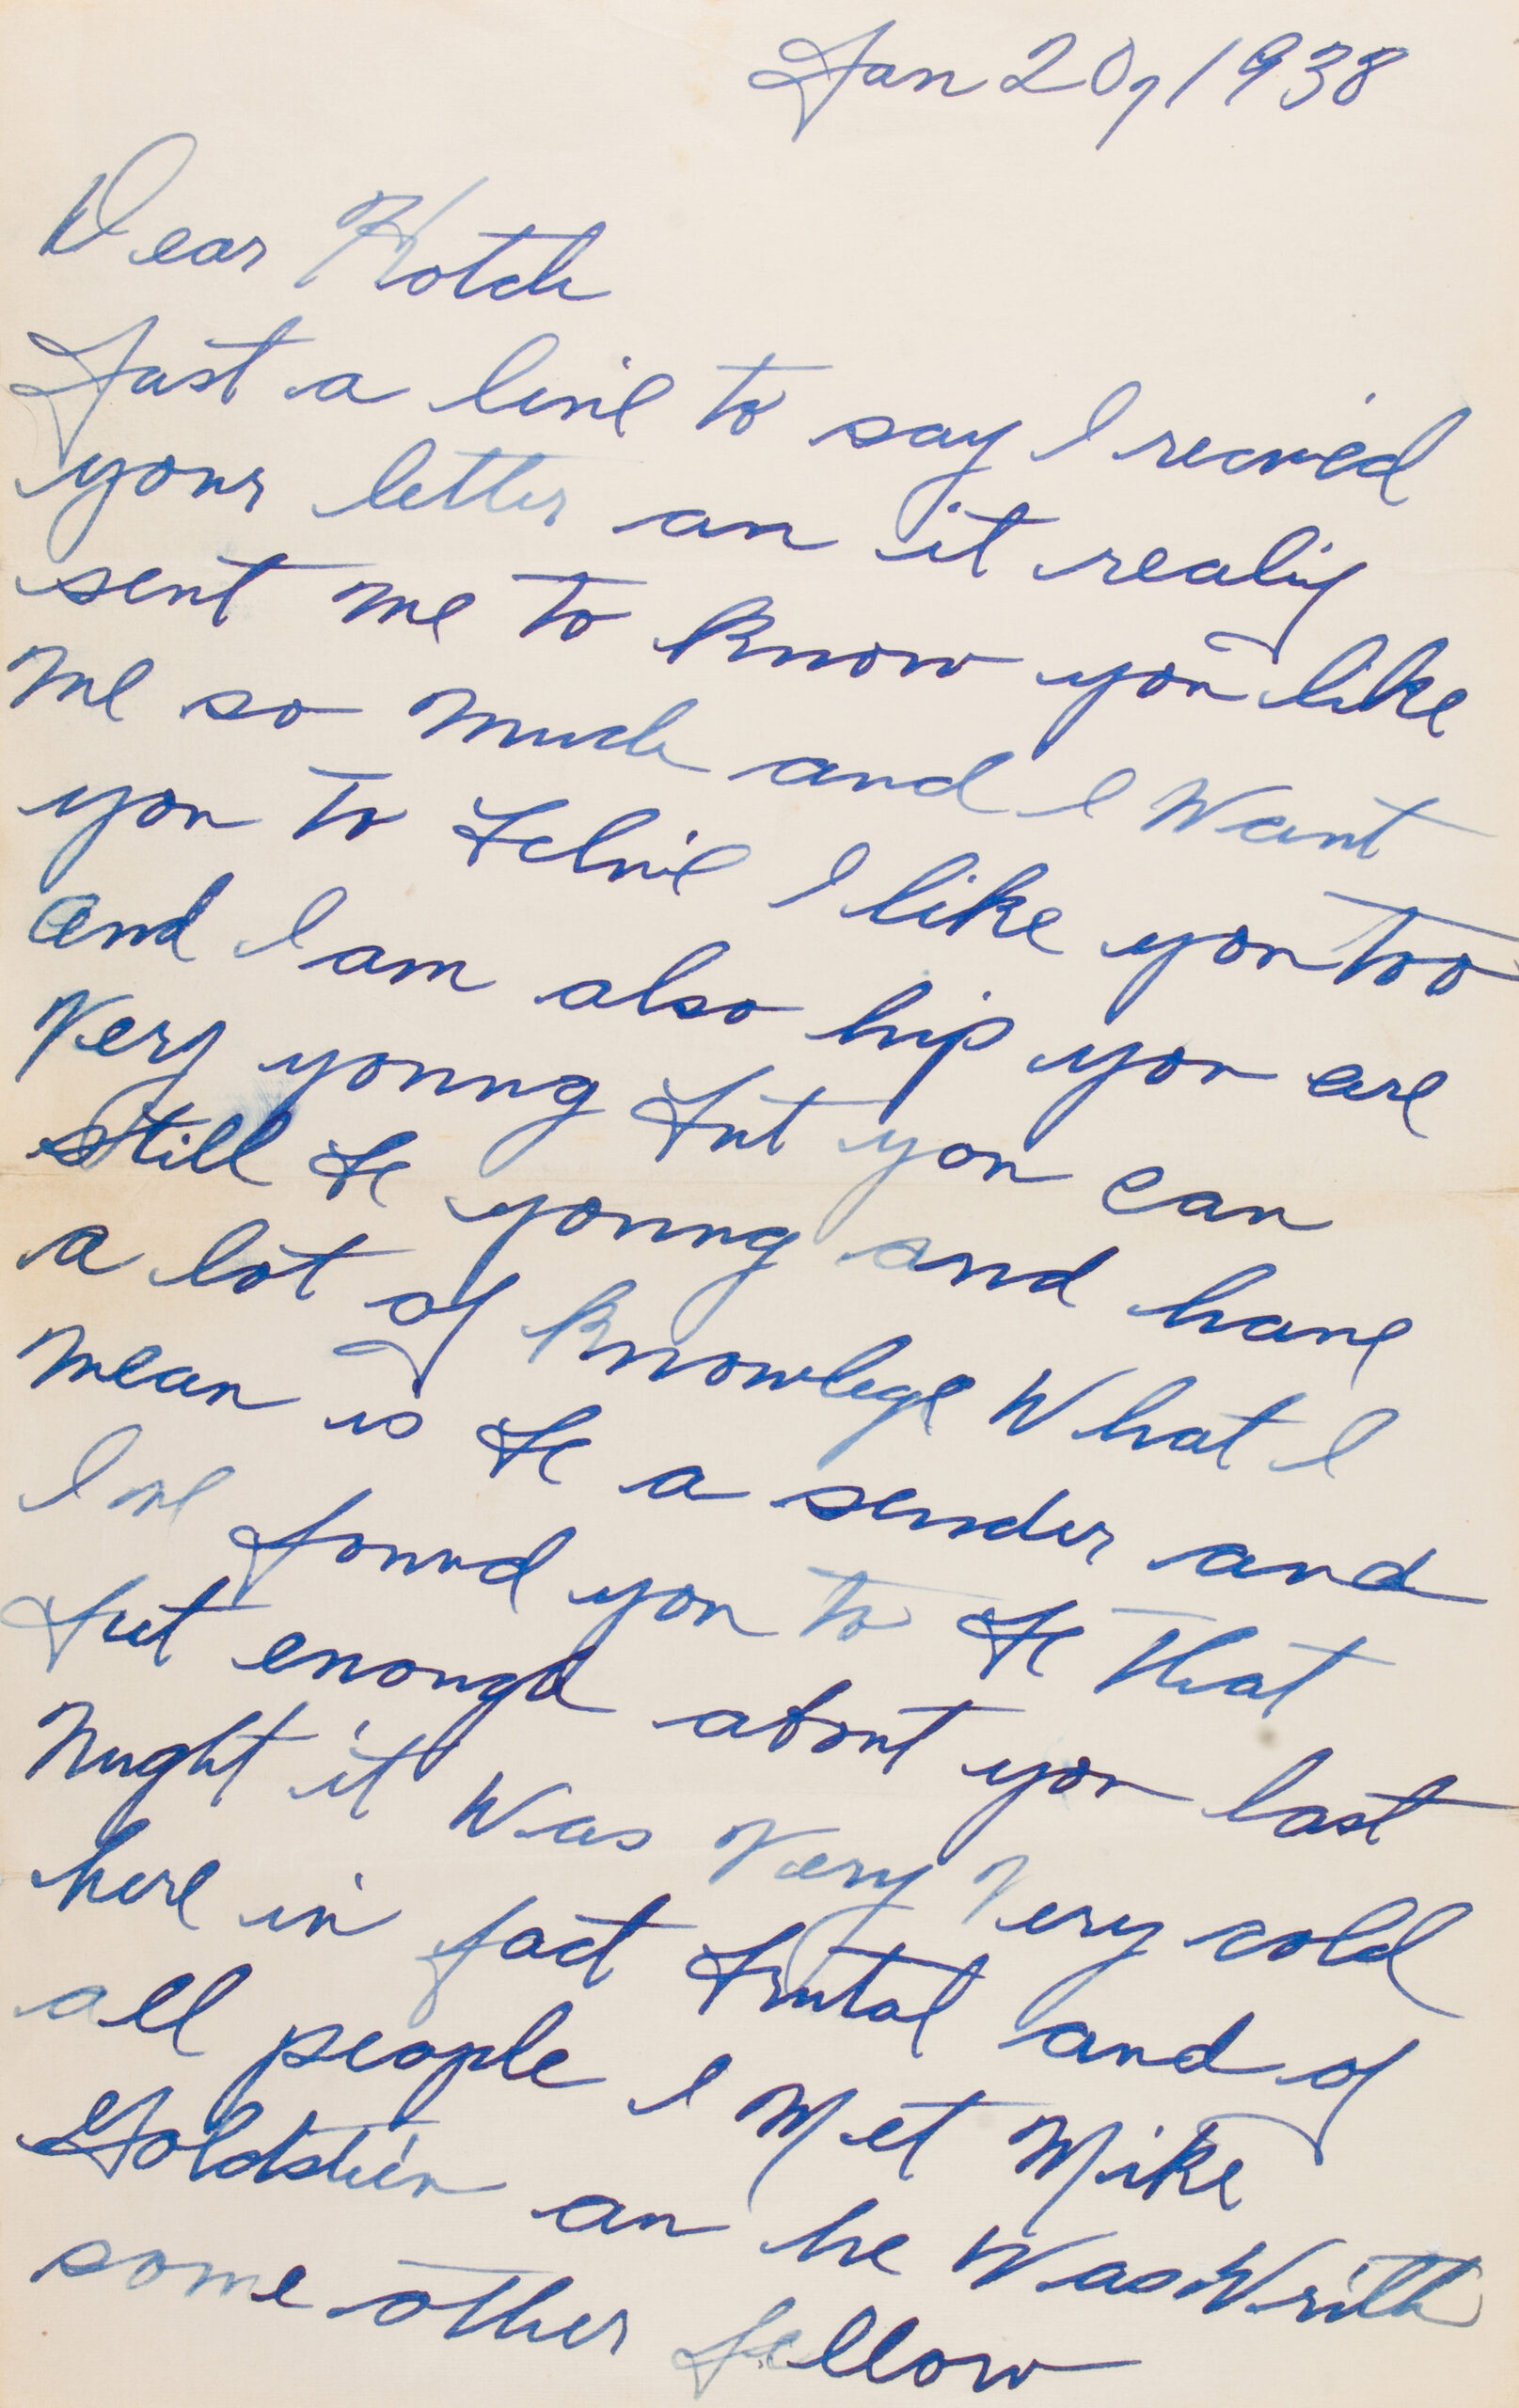 Jan 20, 1938
Dear Hotch
Just a line to say I recived
your letter an it realiy
sent me to know you like
me so much and I Want
you to belive I like you too
and I am also hip you are
Very young but you can
still be young and have
a lot of Knowlege What I
mean is be a sender and
I ve found you to be that
but enough about you last
Night it Was Very Very cold
here in fact brutal and of
all people I Met Mike
Goldstein an he Was With
some other fellow